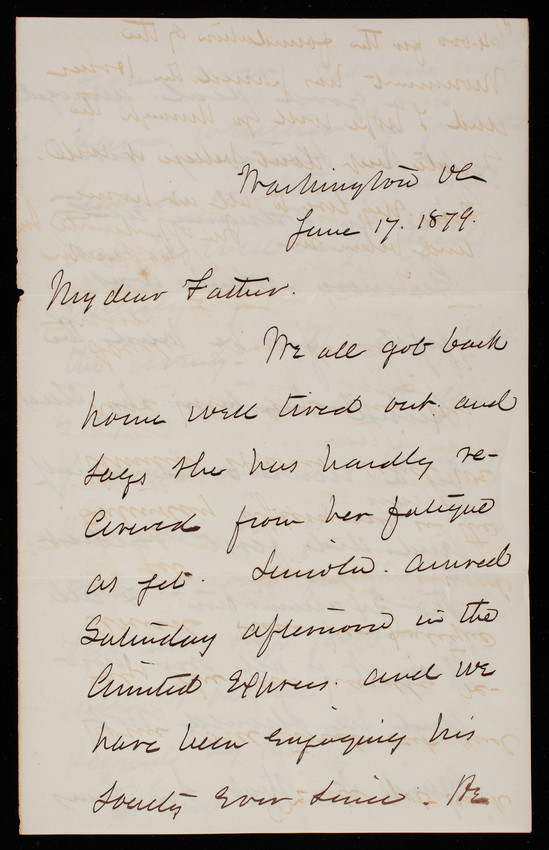 Washington DC
June 17. 1879.
My dear Father.
We all got back
home well tired out. and
says she has hardly re-
covered from her fatigue
as yet. Lincoln. arrived
Saturday afternoon in the
Limited Express. and we
have been enjoying his
society ever since. He